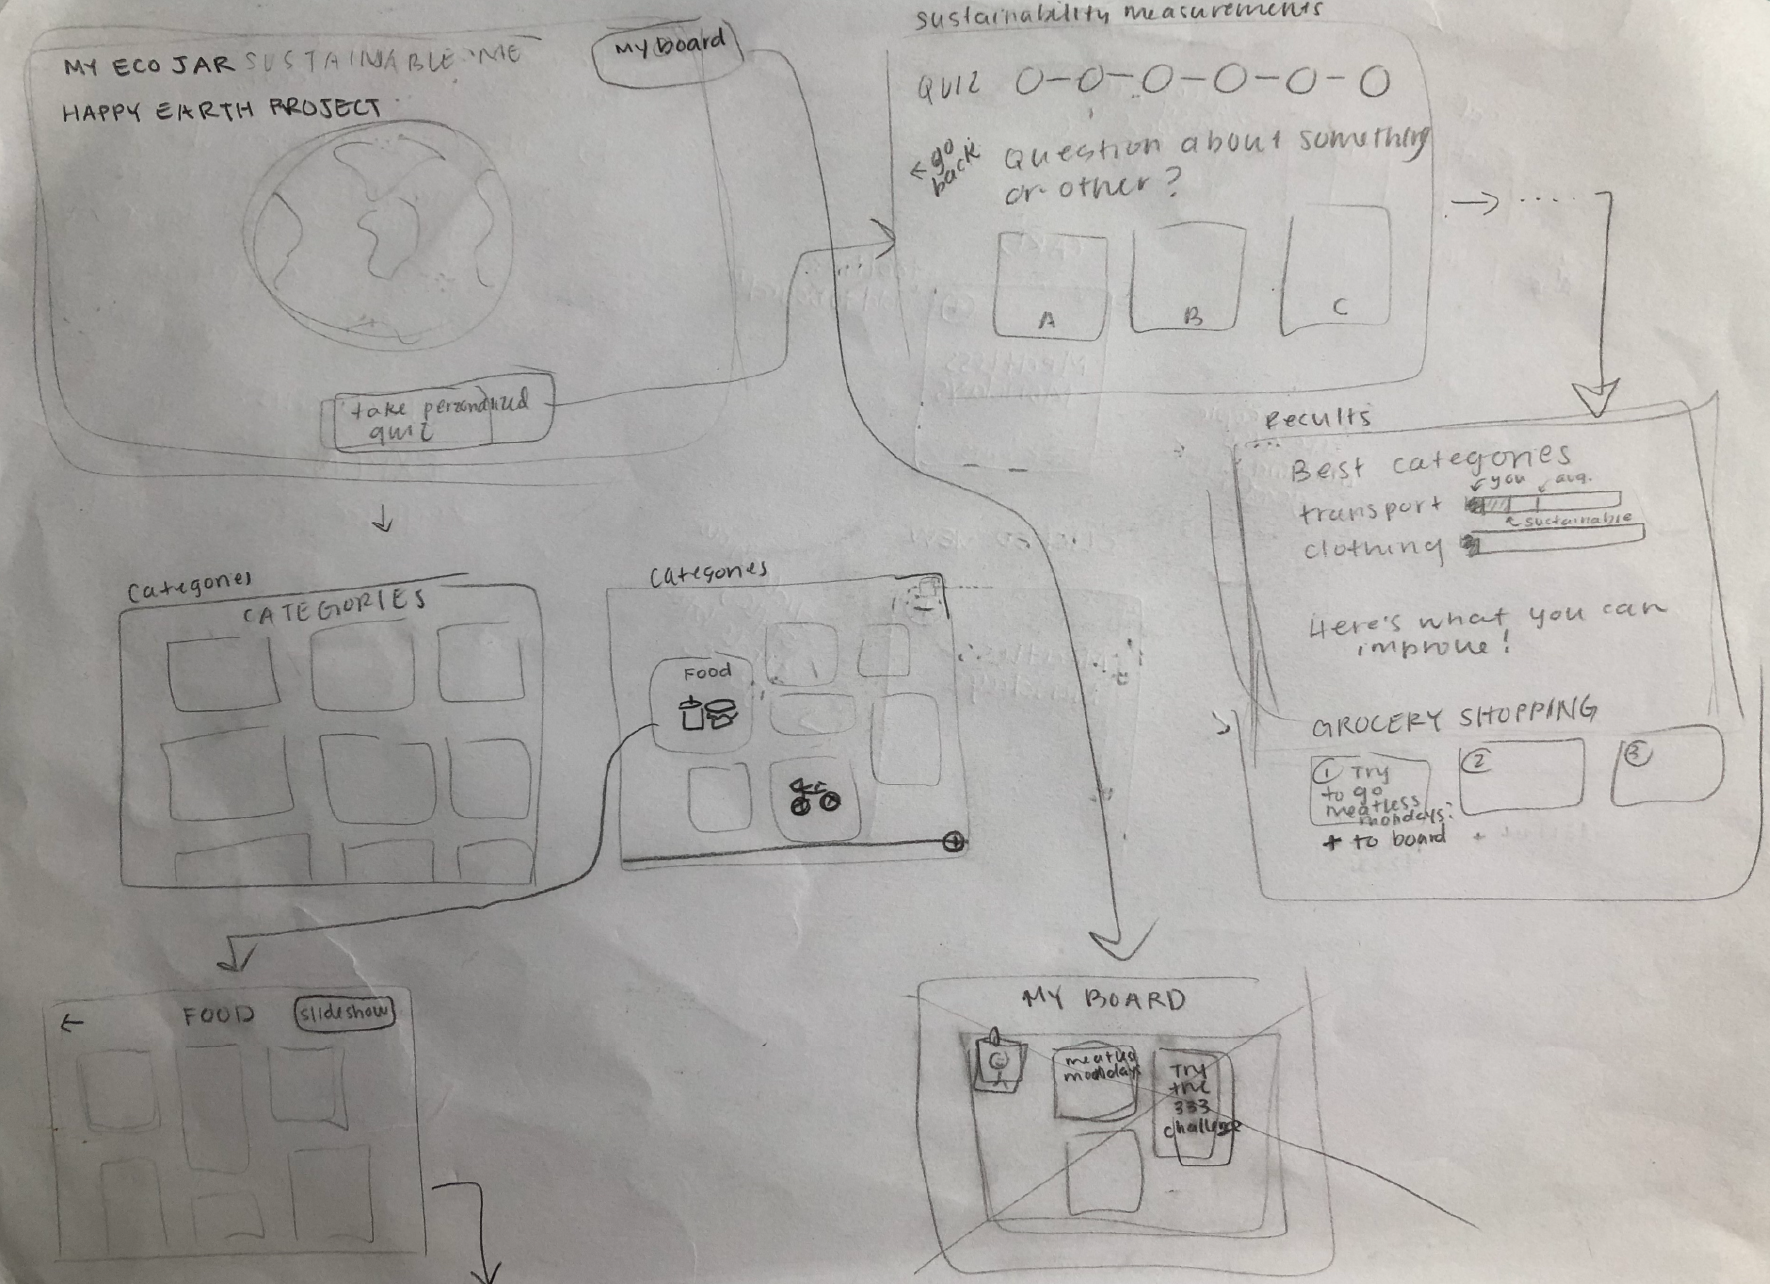 MY ECO JAR SUSTAINABLE ME
HAPPY EARTH PROJECT
My Board
take personalized
quiz
sustainability measurements
QUIZ
← go
back
Question about something
or other?
A
B
C
Recults
Best categories
you
avg.
transport
sustainable
clothing
Here's what you can
improve!
GROCERY SHOPPING
① Try
to go
meatless
mondays.
+ to board
②
③
Categories
CATEGORIES
Categories
Food
FOOD
slideshow
MY BOARD
meatless
mondays
Try
the
333
challenge